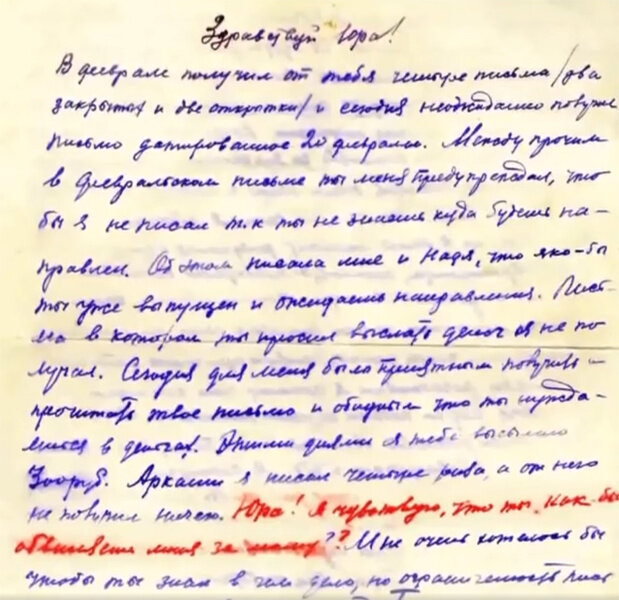 Здравствуй Юра!
В феврале получил от тебя четыре письма /два
закрытых и две открытки/ и сегодня неожиданно получил
письмо датированное 20 февраля. Между прочим
в февральском письме ты меня предупреждал, что
бы я не писал т.к ты не знаешь куда будешь на-
правлен. Об этом писала мне и Надя, что яко-бы
ты уже выпущен и ожидаешь направления. Пись-
ма в котором ты просил выслать денег я не по
лучал. Сегодня для меня было приятным получить и
прочитать твое письмо и обидным что ты нужда-
ешься в деньгах. Этими днями я тебе высылаю
300руб. Аркаши я писал четыре раза, а от него
не получил ничего. Юра! Я чувствую, что ты, как-бы
обвиняешь меня за ?? Мне очень хотелось бы
чтобы ты знал в чем дело, но ограниченность